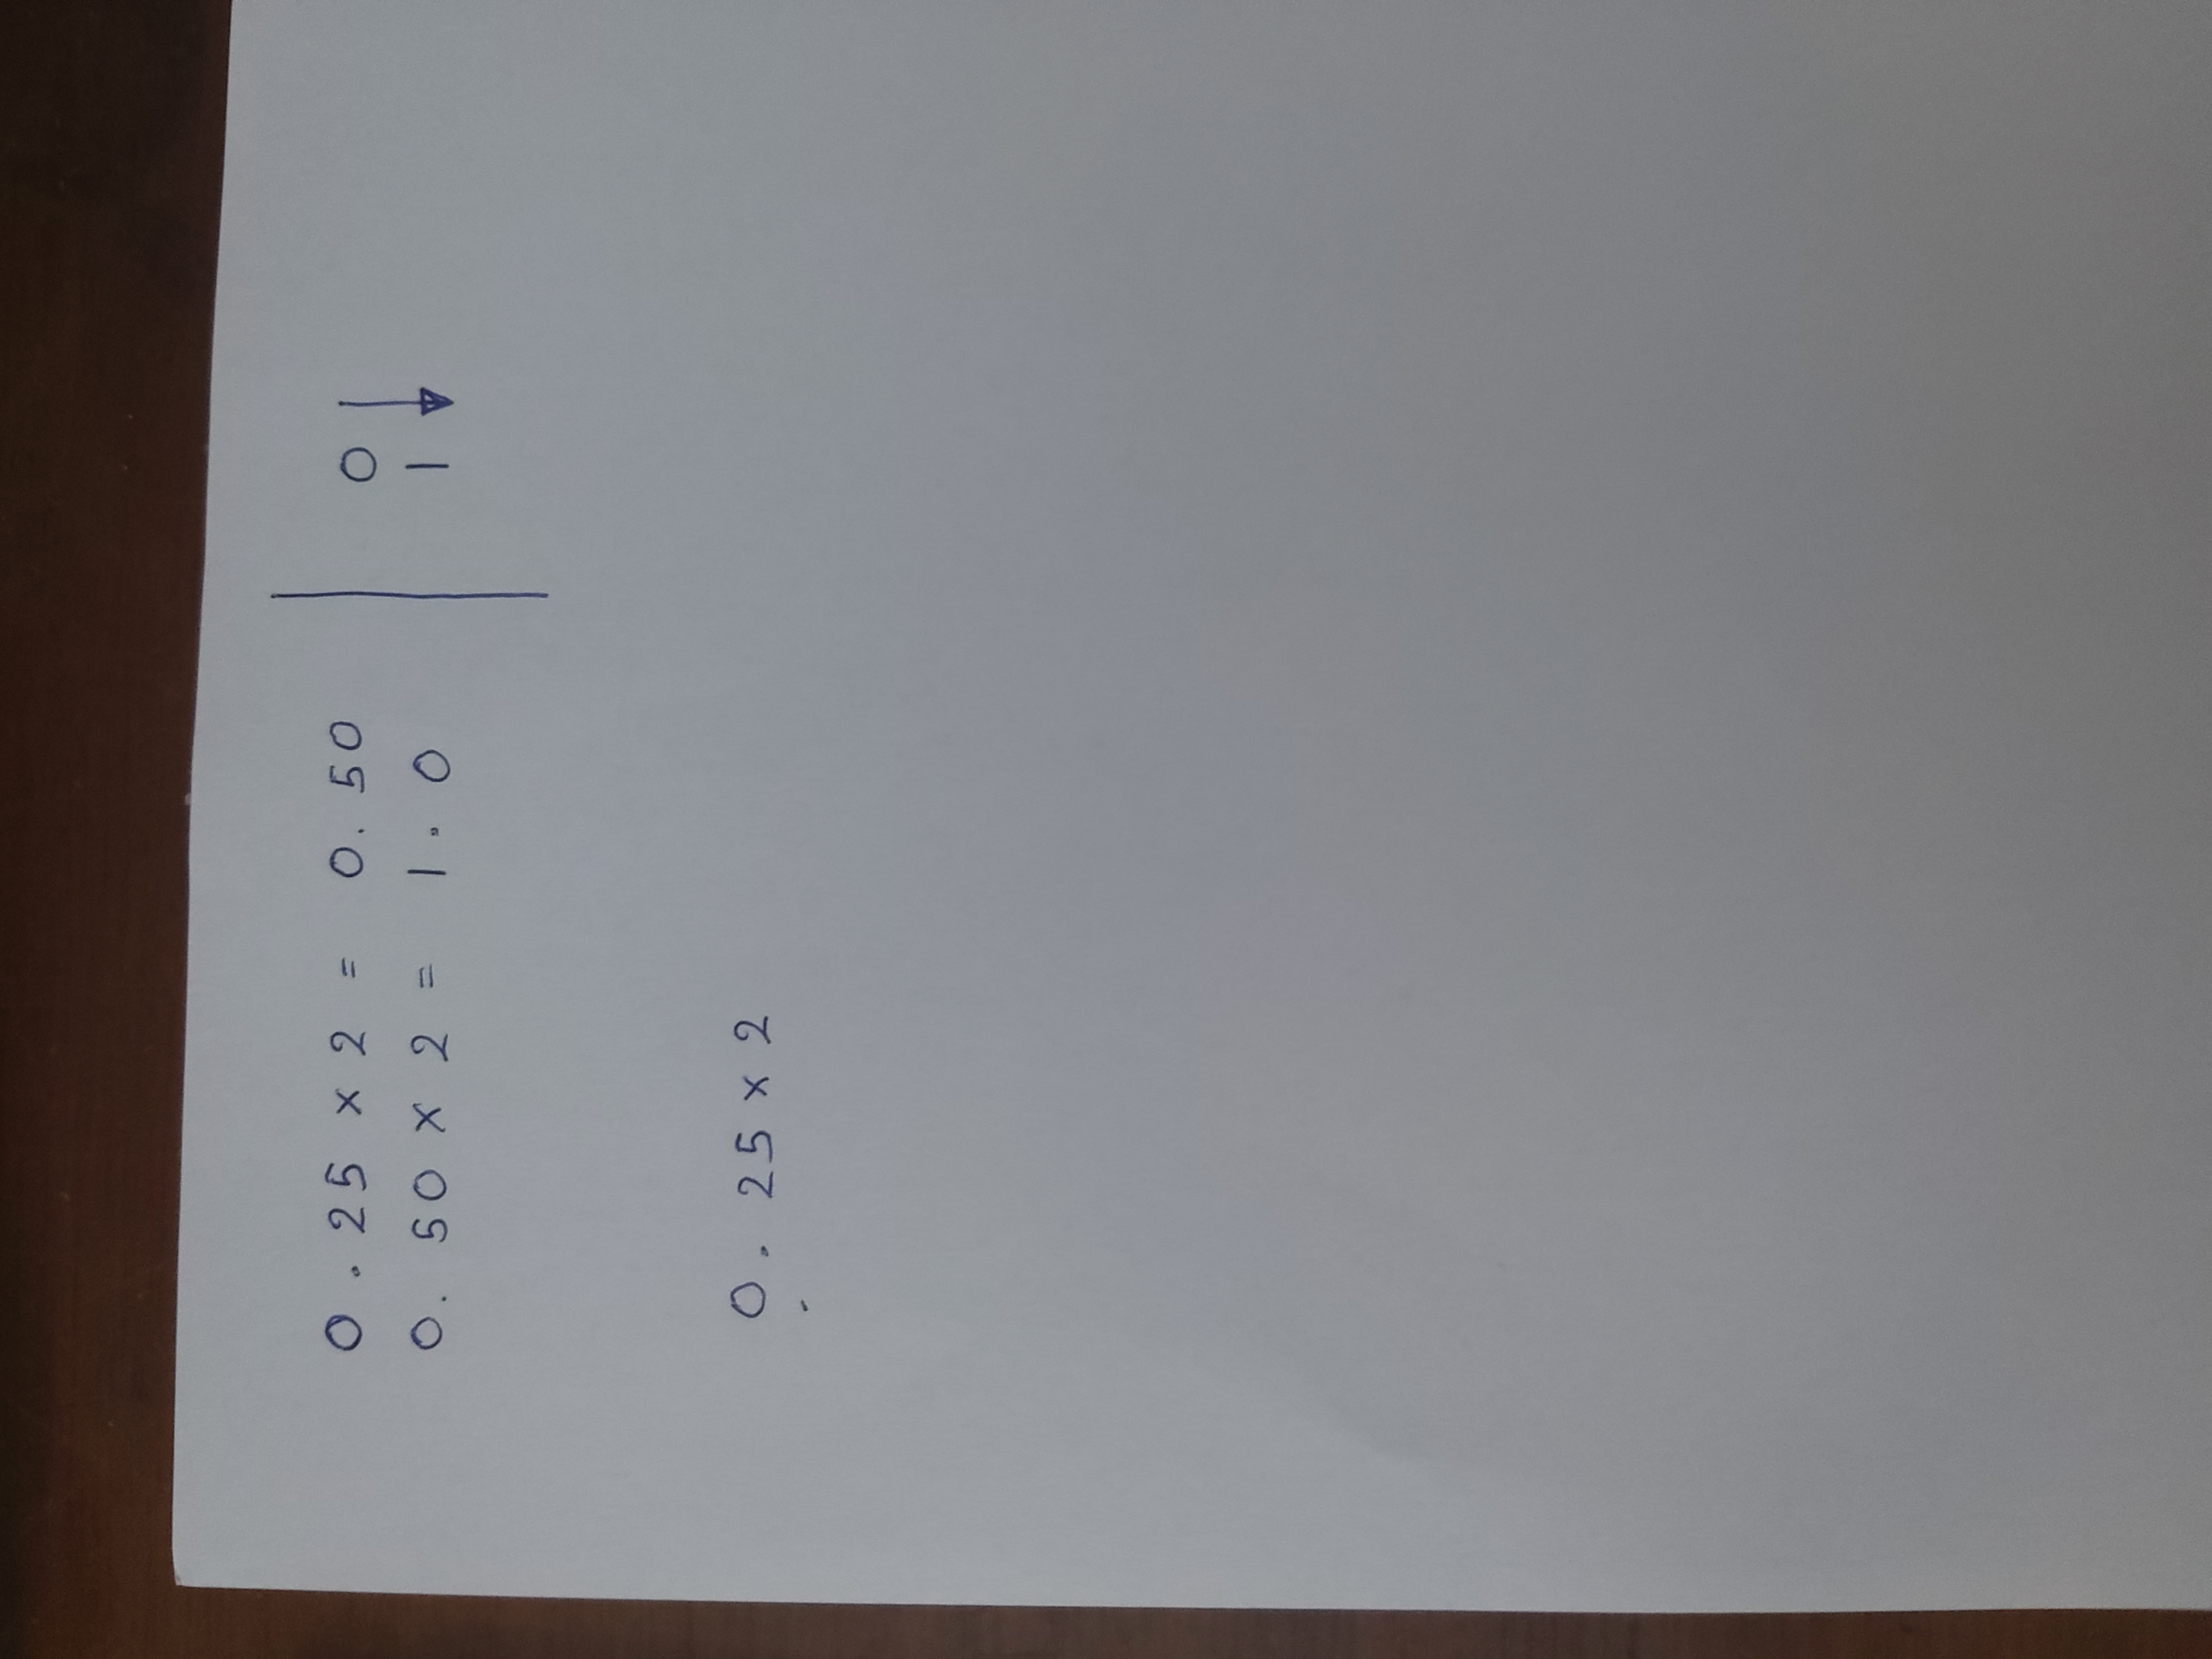 0.25 × 2 = 0.50 | 0
0.50 × 2 = 1.0 | 1
0.25 × 2